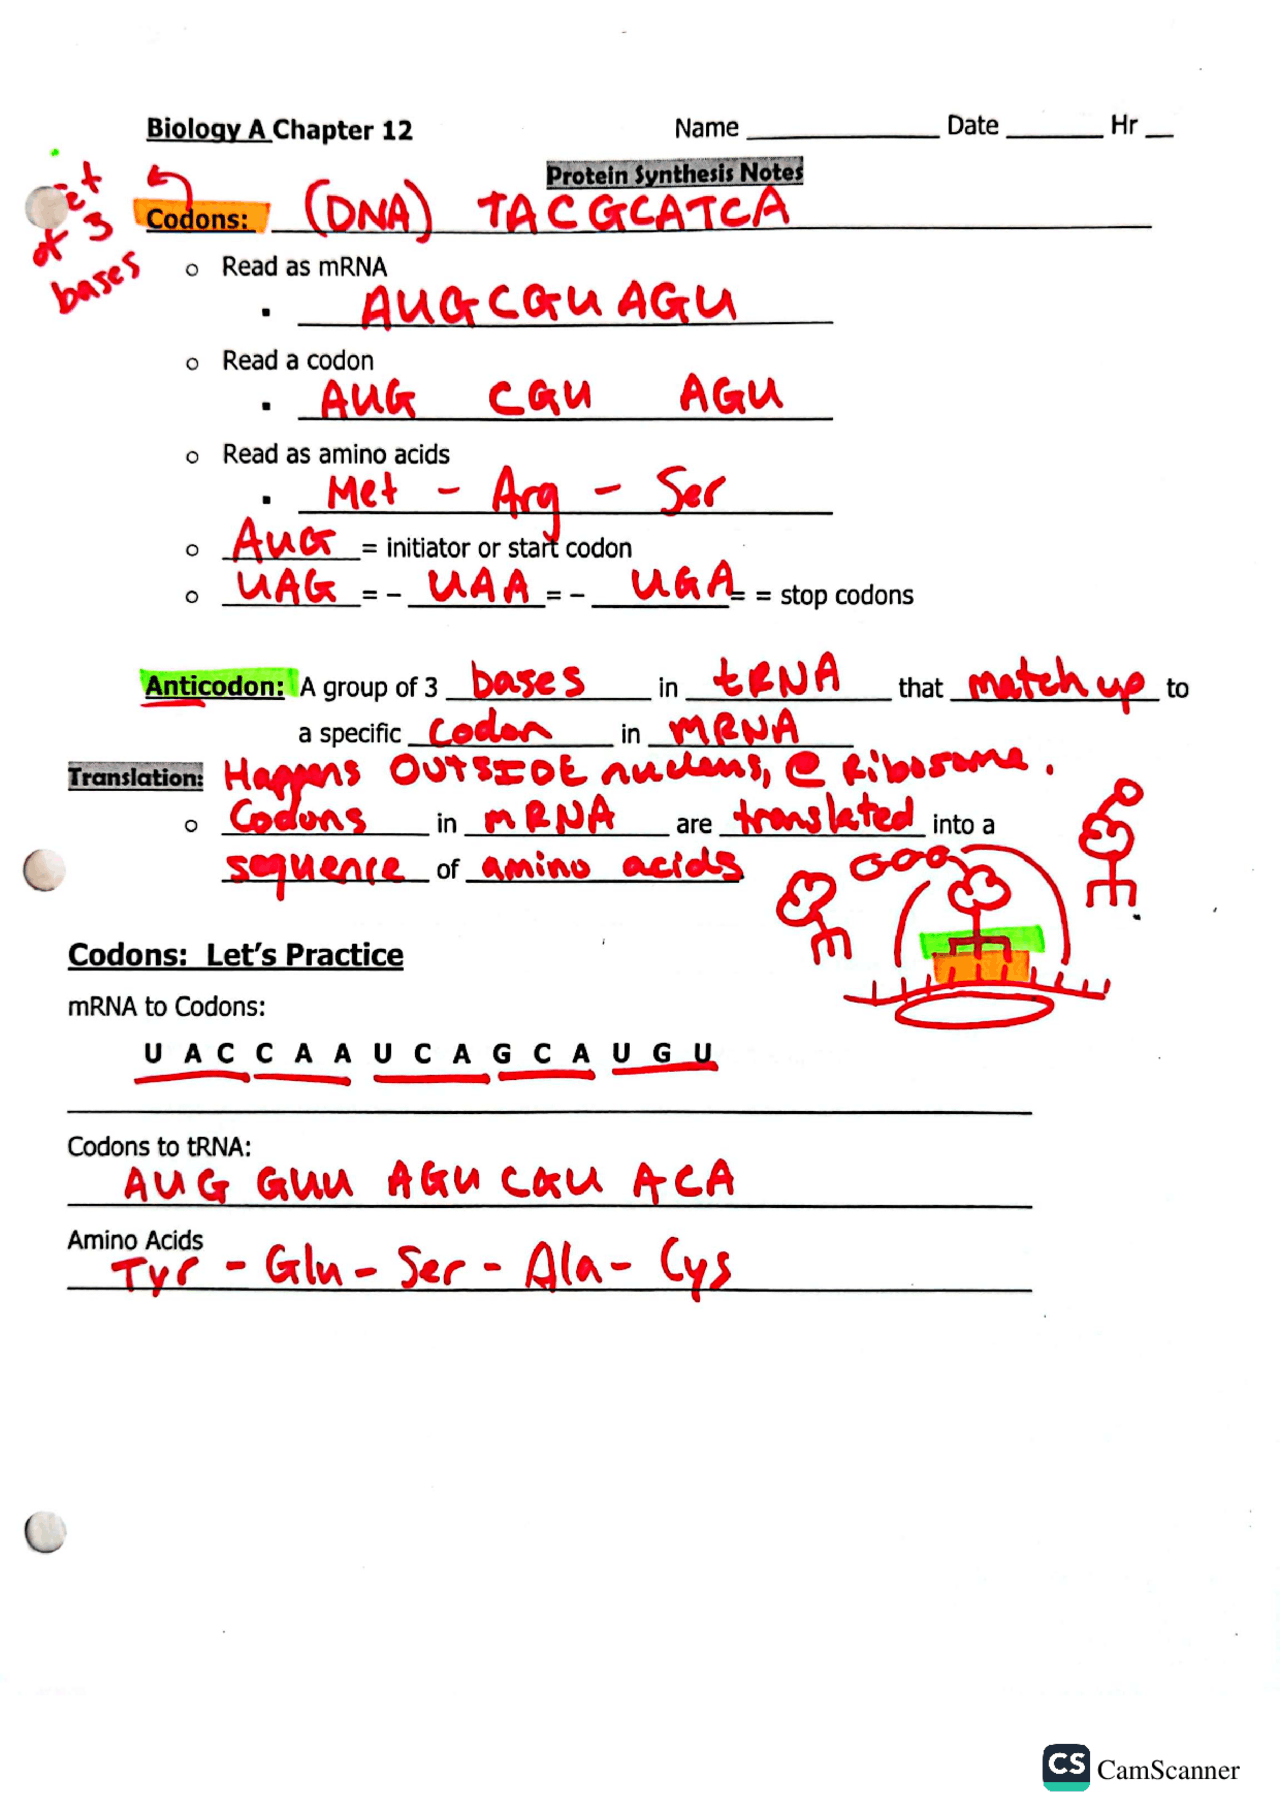 Biology A Chapter 12 Name ____ Date ____ Hr __
Protein Synthesis Notes
of 3
bases
Codons: (DNA) TACGCATCA
o Read as mRNA
▪ AUGCGUAGU
o Read a codon
▪ AUG CGU AGU
o Read as amino acids
▪ Met - Arg - Ser
o AUG = initiator or start codon
o UAG = - UAA = - UGA = = stop codons
Anticodon: A group of 3 bases in tRNA that match up to
a specific codon in mRNA
Translation: Happens OUTSIDE nucleus, @ Ribosome.
o Codons in mRNA are translated into a
sequence of amino acids
Codons: Let's Practice
mRNA to Codons:
U A C C A A U C A G C A U G U
Codons to tRNA:
AUG GUU AGU CGU ACA
Amino Acids
Tyr - Gln - Ser - Ala - Cys
CS CamScanner